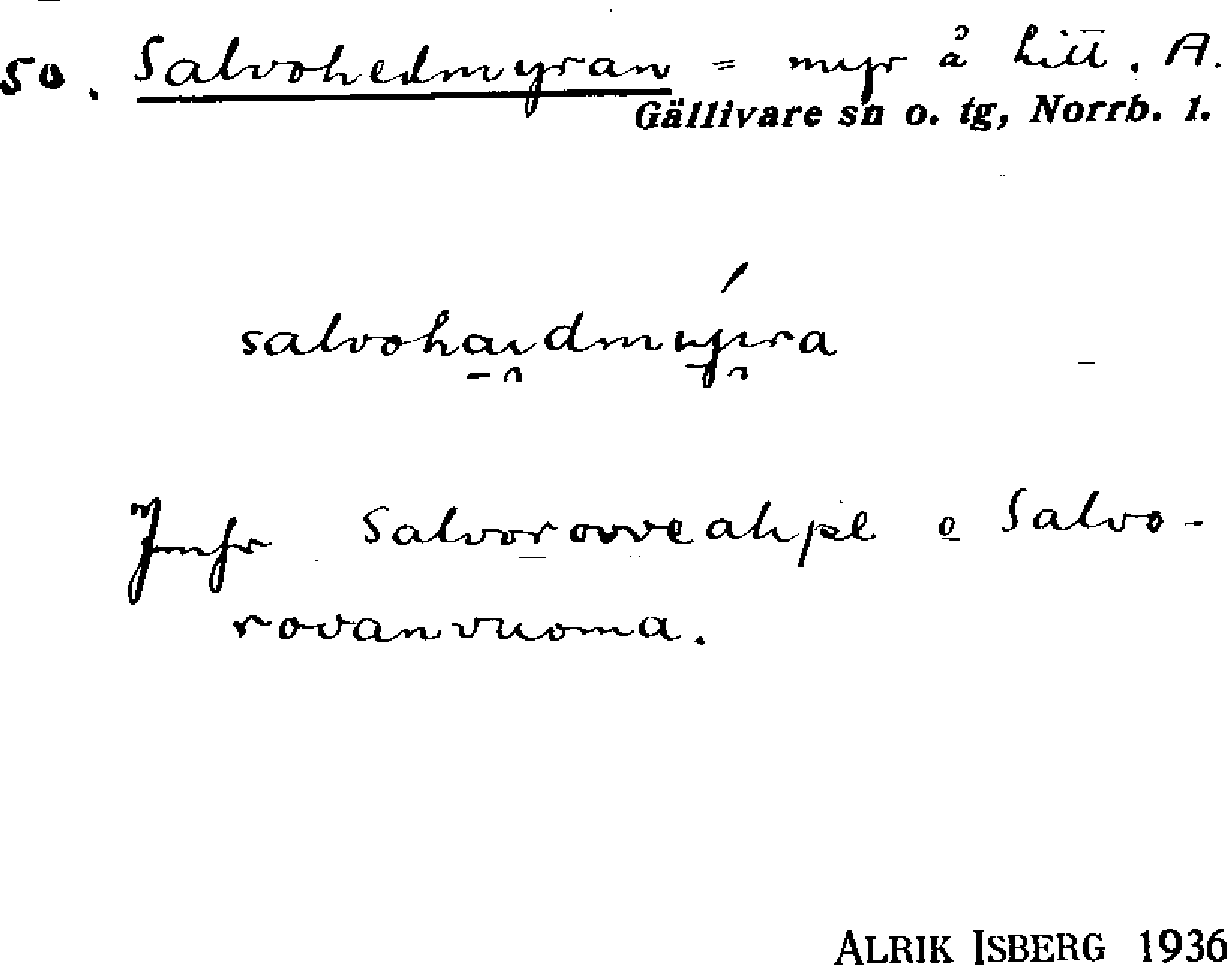 50. Salvohedmyran = myr å litt. A.
Gällivare sn o. tg, Norrb. l.
salvohaidmyira
Jmfr Salvorovveahpe o Salvo-
rovanvuoma.
ALRIK ISBERG 1936